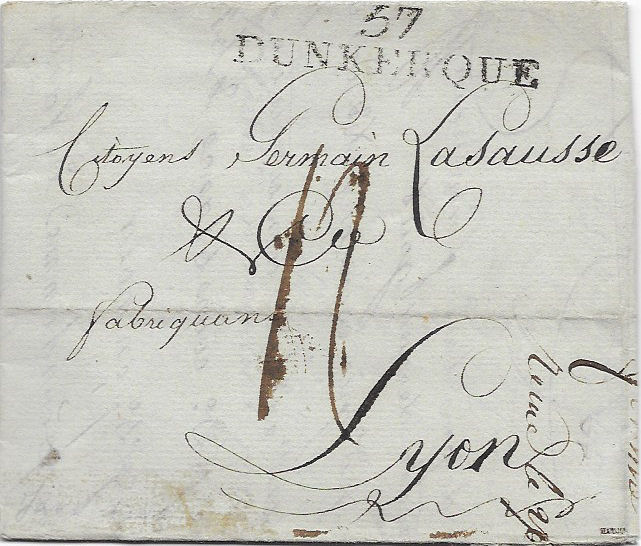 57
DUNKERQUE
Citoyens Germain Lasausse
& Cie
fabriquans
Lyon